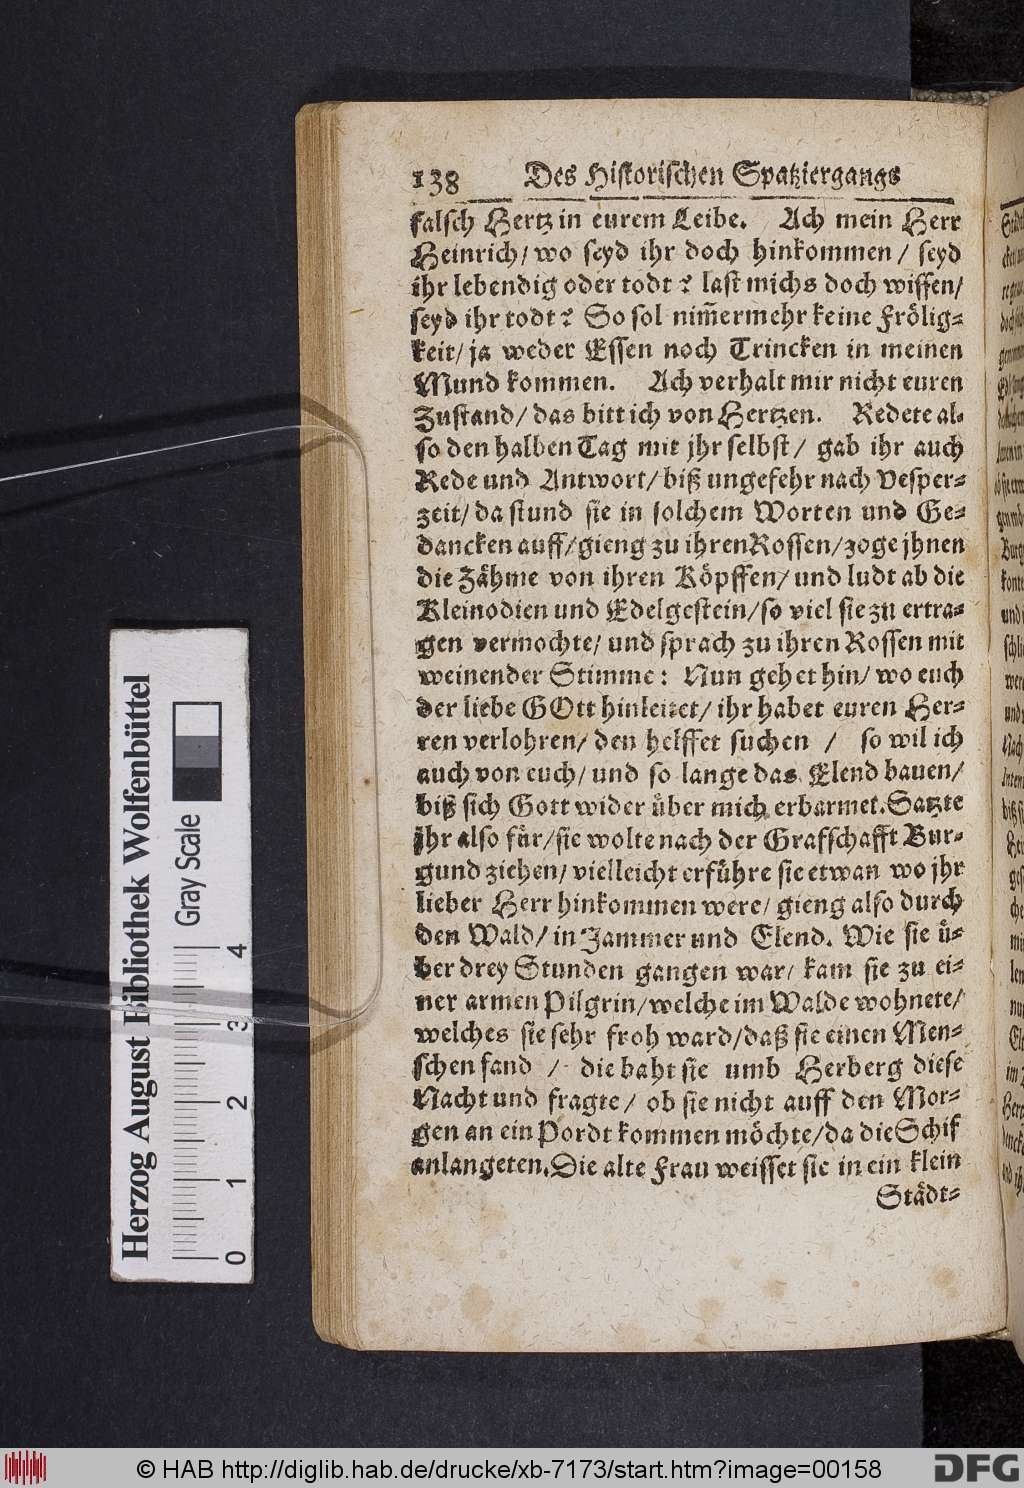 138 Des Historischen Spatziergangs
falsch Hertz in eurem Leibe. Ach mein Herr
Heinrich/ wo seyd ihr doch hinkommen/ seyd
ihr lebendig oder todt? last michs doch wissen/
seyd ihr todt? So sol nim̃ermehr keine Frölig-
keit/ ja weder Essen noch Trincken in meinen
Mund kommen. Ach verhalt mir nicht euren
Zustand/ das bitt ich von Hertzen. Redete al-
so den halben Tag mit jhr selbst/ gab ihr auch
Rede und Antwort/ biß ungefehr nach Vesper-
zeit/ da stund sie in solchem Worten und Ge-
dancken auff/ gieng zu ihren Rossen/ zoge jhnen
die Zähme von ihren Köpffen/ und ludt ab die
Kleinodien und Edelgestein/ so viel sie zu ertra-
gen vermochte/ und sprach zu ihren Rossen mit
weinender Stimme: Nun gehet hin/ wo euch
der liebe GOtt hinleitet/ ihr habet euren Her-
ren verlohren/ den helffet suchen / so wil ich
auch von euch/ und so lange das Elend bauen/
biß sich Gott wider über mich erbarmet. Satzte
jhr also für/ sie wolte nach der Grafschafft Bur-
gund ziehen/ vielleicht erführe sie etwan wo jhr
lieber Herr hinkommen were/ gieng also durch
den Wald/ in Jammer und Elend. Wie sie ü-
ber drey Stunden gangen war/ kam sie zu ei-
ner armen Pilgrin/ welche im Walde wohnete/
welches sie sehr froh ward/ daß sie einen Men-
schen fand / die baht sie umb Herberg diese
Nacht und fragte/ ob sie nicht auff den Mor-
gen an ein Pordt kommen möchte/ da die Schif
anlangeten. Die alte Frau weisset sie in ein klein
Städt-
Herzog August Bibliothek Wolfenbüttel
Gray Scale
0 1 2 3 4
© HAB http://diglib.hab.de/drucke/xb-7173/start.htm?image=00158
DFG